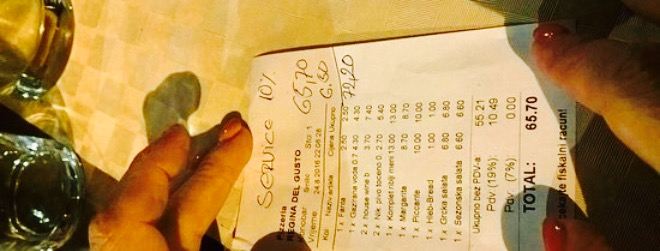 SERVICE 10%
65,70
6,50
72,20
Pizzeria
REGINA DEL GUSTO
Konobar: Sto: 1
Vrijeme: 24.8.2016 22:06:28
Kol Naziv artikla Cijena Ukupno
1 x Fanta 2.50 2.50
1 x Gazirana voda 0.7 4.30 4.30
2 x house wine b 3.70 7.40
2 x Nik pivo toceno 0. 2.70 5.40
1 x Kompirici rbilji meni 13.00 13.00
1 x Margarita 8.70 8.70
1 x Piccante 10.00 10.00
1 x Hleb-Bread 1.00 1.00
1 x Grcka salata 6.80 6.80
1 x Sezonska salata 6.60 6.60
Ukupno bez PDV-a: 55.21
Pdv (19%): 10.49
Pdv (7%): 0.00
TOTAL: 65.70
fiskalni racun!